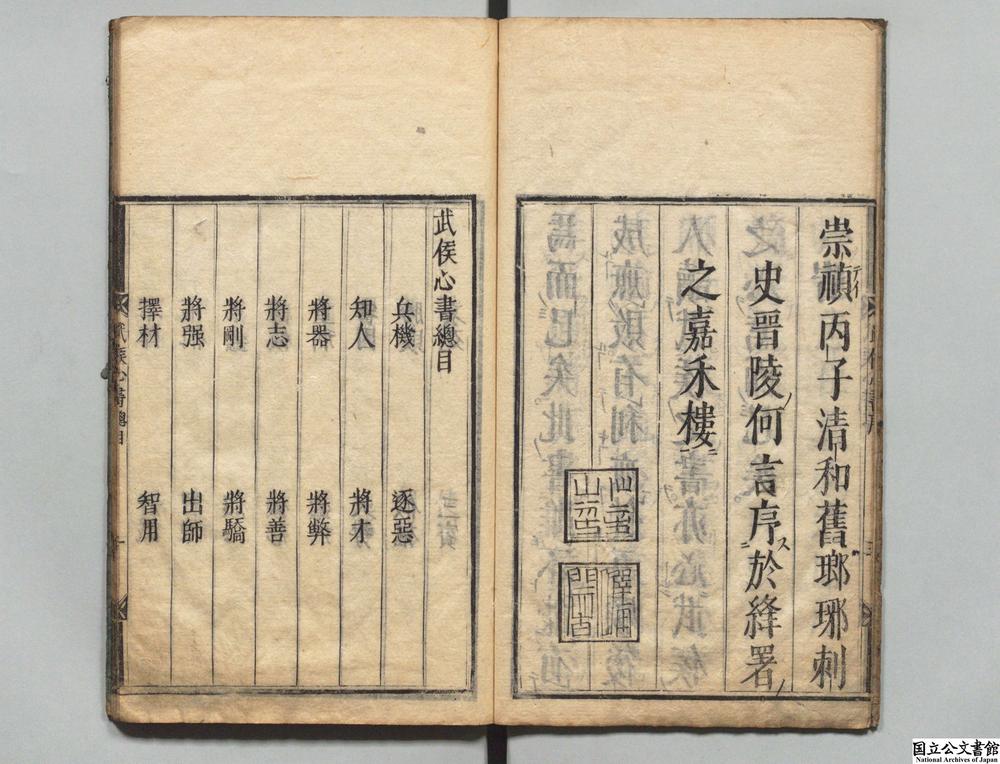 崇禎丙子清和舊瑯琊刺
史晉陵何言序於絳署
之嘉禾樓
武侯心書總目
兵機 逐惡
知人 將才
將器 將弊
將志 將善
將剛 將驕
將强 出師
擇材 智用
武侯心書總目 一
国立公文書館
National Archives of Japan